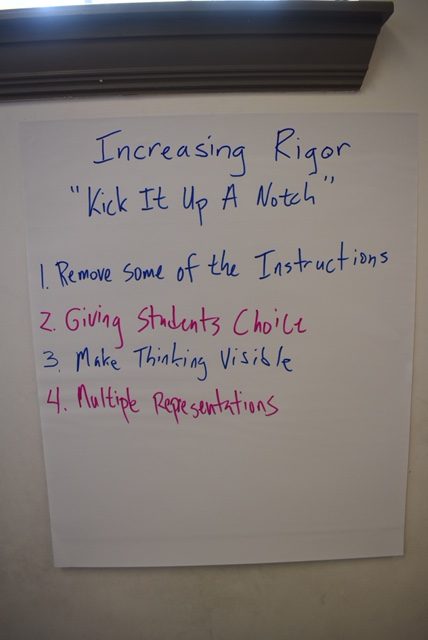 Increasing Rigor
"Kick It Up A Notch"
1. Remove some of the Instructions
2. Giving Students Choice
3. Make Thinking Visible
4. Multiple Representations